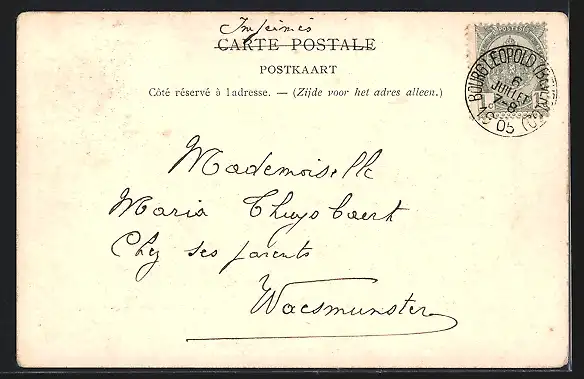 Imprimés
CARTE POSTALE
POSTKAART
Côté réservé à ladresse. — (Zijde voor het adres alleen.)
BOURG-LÉOPOLD (CAMP)
6
JUILLET
7-8
1905
Mademoiselle
Maria Thuysbaert
Chez ses parents
Waesmunster